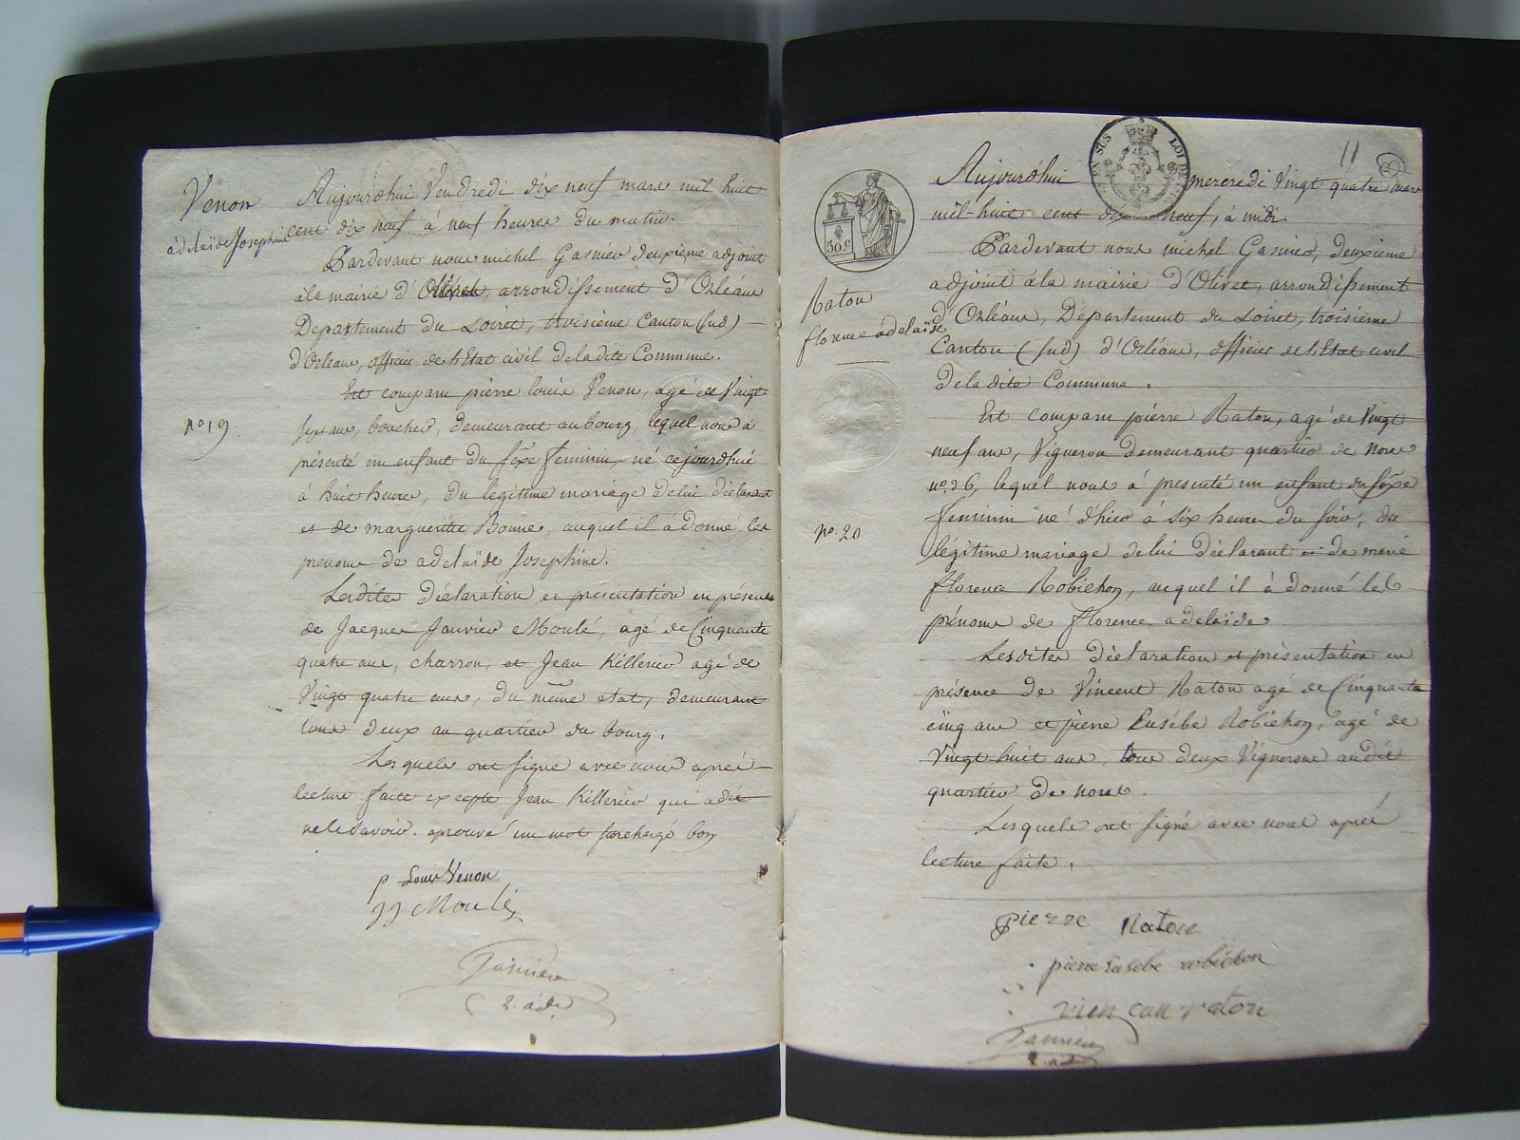 Venon
adelaïde Josephine
Aujourdhui Vendredi dix neuf mars mil huit
cent dix neuf à neuf heures du matin.
Pardevant nous michel Gasnier deuxième adjoint
à la mairie d'Olivet, arrondissement d'Orléans
Département du Loiret, troisième Canton (sud)
d'Orléans, officier de l'Etat civil de ladite Commune.
Est comparu pierre louis Venon, agé de Vingt
sept ans, boucher, demeurant au bourg, lequel nous a
présenté un enfant du sèxe feminin, né cejourdhui
à huit heures, du legitime mariage de lui déclarant
et de marguerite Bonne, auquel il à donné les
prenoms de adelaïde Josephine.
Lesdites Déclaration et présentation en présence
de Jacques Janvier Moulé, agé de Cinquante
quatre ans, charron, et Jean Killerier agé de
Vingt quatre ans, du même etat, demeurant
tous deux au quartier du bourg.
Lesquels ont signé avec nous après
lecture faite excepté Jean Killerier qui a dit
ne le savoir. aprouvé un mot surchargé bon
nº 19
p Louis Venon
JJ Moulé
Gasnier
2. adj.
11
50 c
EN SUS
LOI DE
Raton
florence adelaïde
nº. 20
Aujourdhui mercredi Vingt quatre mars
mil-huit cent dix neuf, à midi.
Pardevant nous michel Gasnier, deuxième
adjoint à la mairie d'Olivet, arrondissement
d'Orléans, Département du Loiret, troisième
Canton (sud) d'Orléans, officier de l'Etat civil
de la dite Commune.
Est comparu pierre Raton, agé de Vingt
neuf ans, Vigneron demeurant quartier de
nº. 26, lequel nous à presenté un enfant du sèxe
feminin né d'hier à six heures du soir, du
légitime mariage de lui déclarant et de marie
florence Robichon, auquel il à donné les
prénoms de florence adelaïde.
Lesdites Déclaration et présentation en
présence de Vincent Raton agé de Cinquante
cinq ans et pierre Eusébe Robichon, agé de
Vingt huit ans, tous deux Vignerons audit
quartier de
Lesquels ont signé avec nous après
lecture faite.
pierre Raton
pierre Eusebe robichon
vien can raton
Gasnier
2. adj